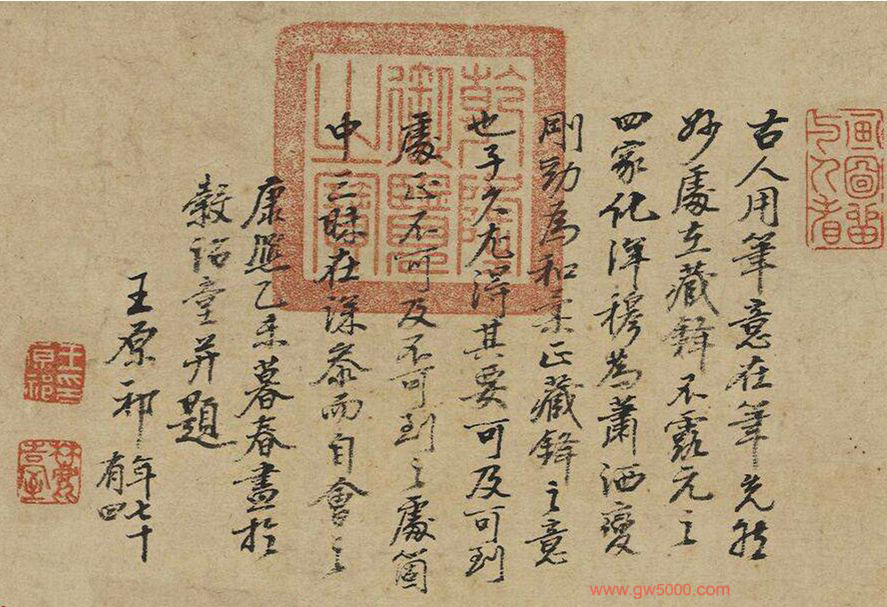 画圖留与人看
古人用筆意在筆先然
妙處在藏鋒不露元之
四家化渾穆為蕭洒變
剛勁為和柔正藏鋒之意
也子久尤得其要可及可到
處正不可及不可到之處箇
中三昧在深參而自會之
康熙乙未暮春畫於
穀詒堂并題
王原祁年七十
有四
乾隆
御覽
之寶
王原祁印
麓臺
www.gw5000.com